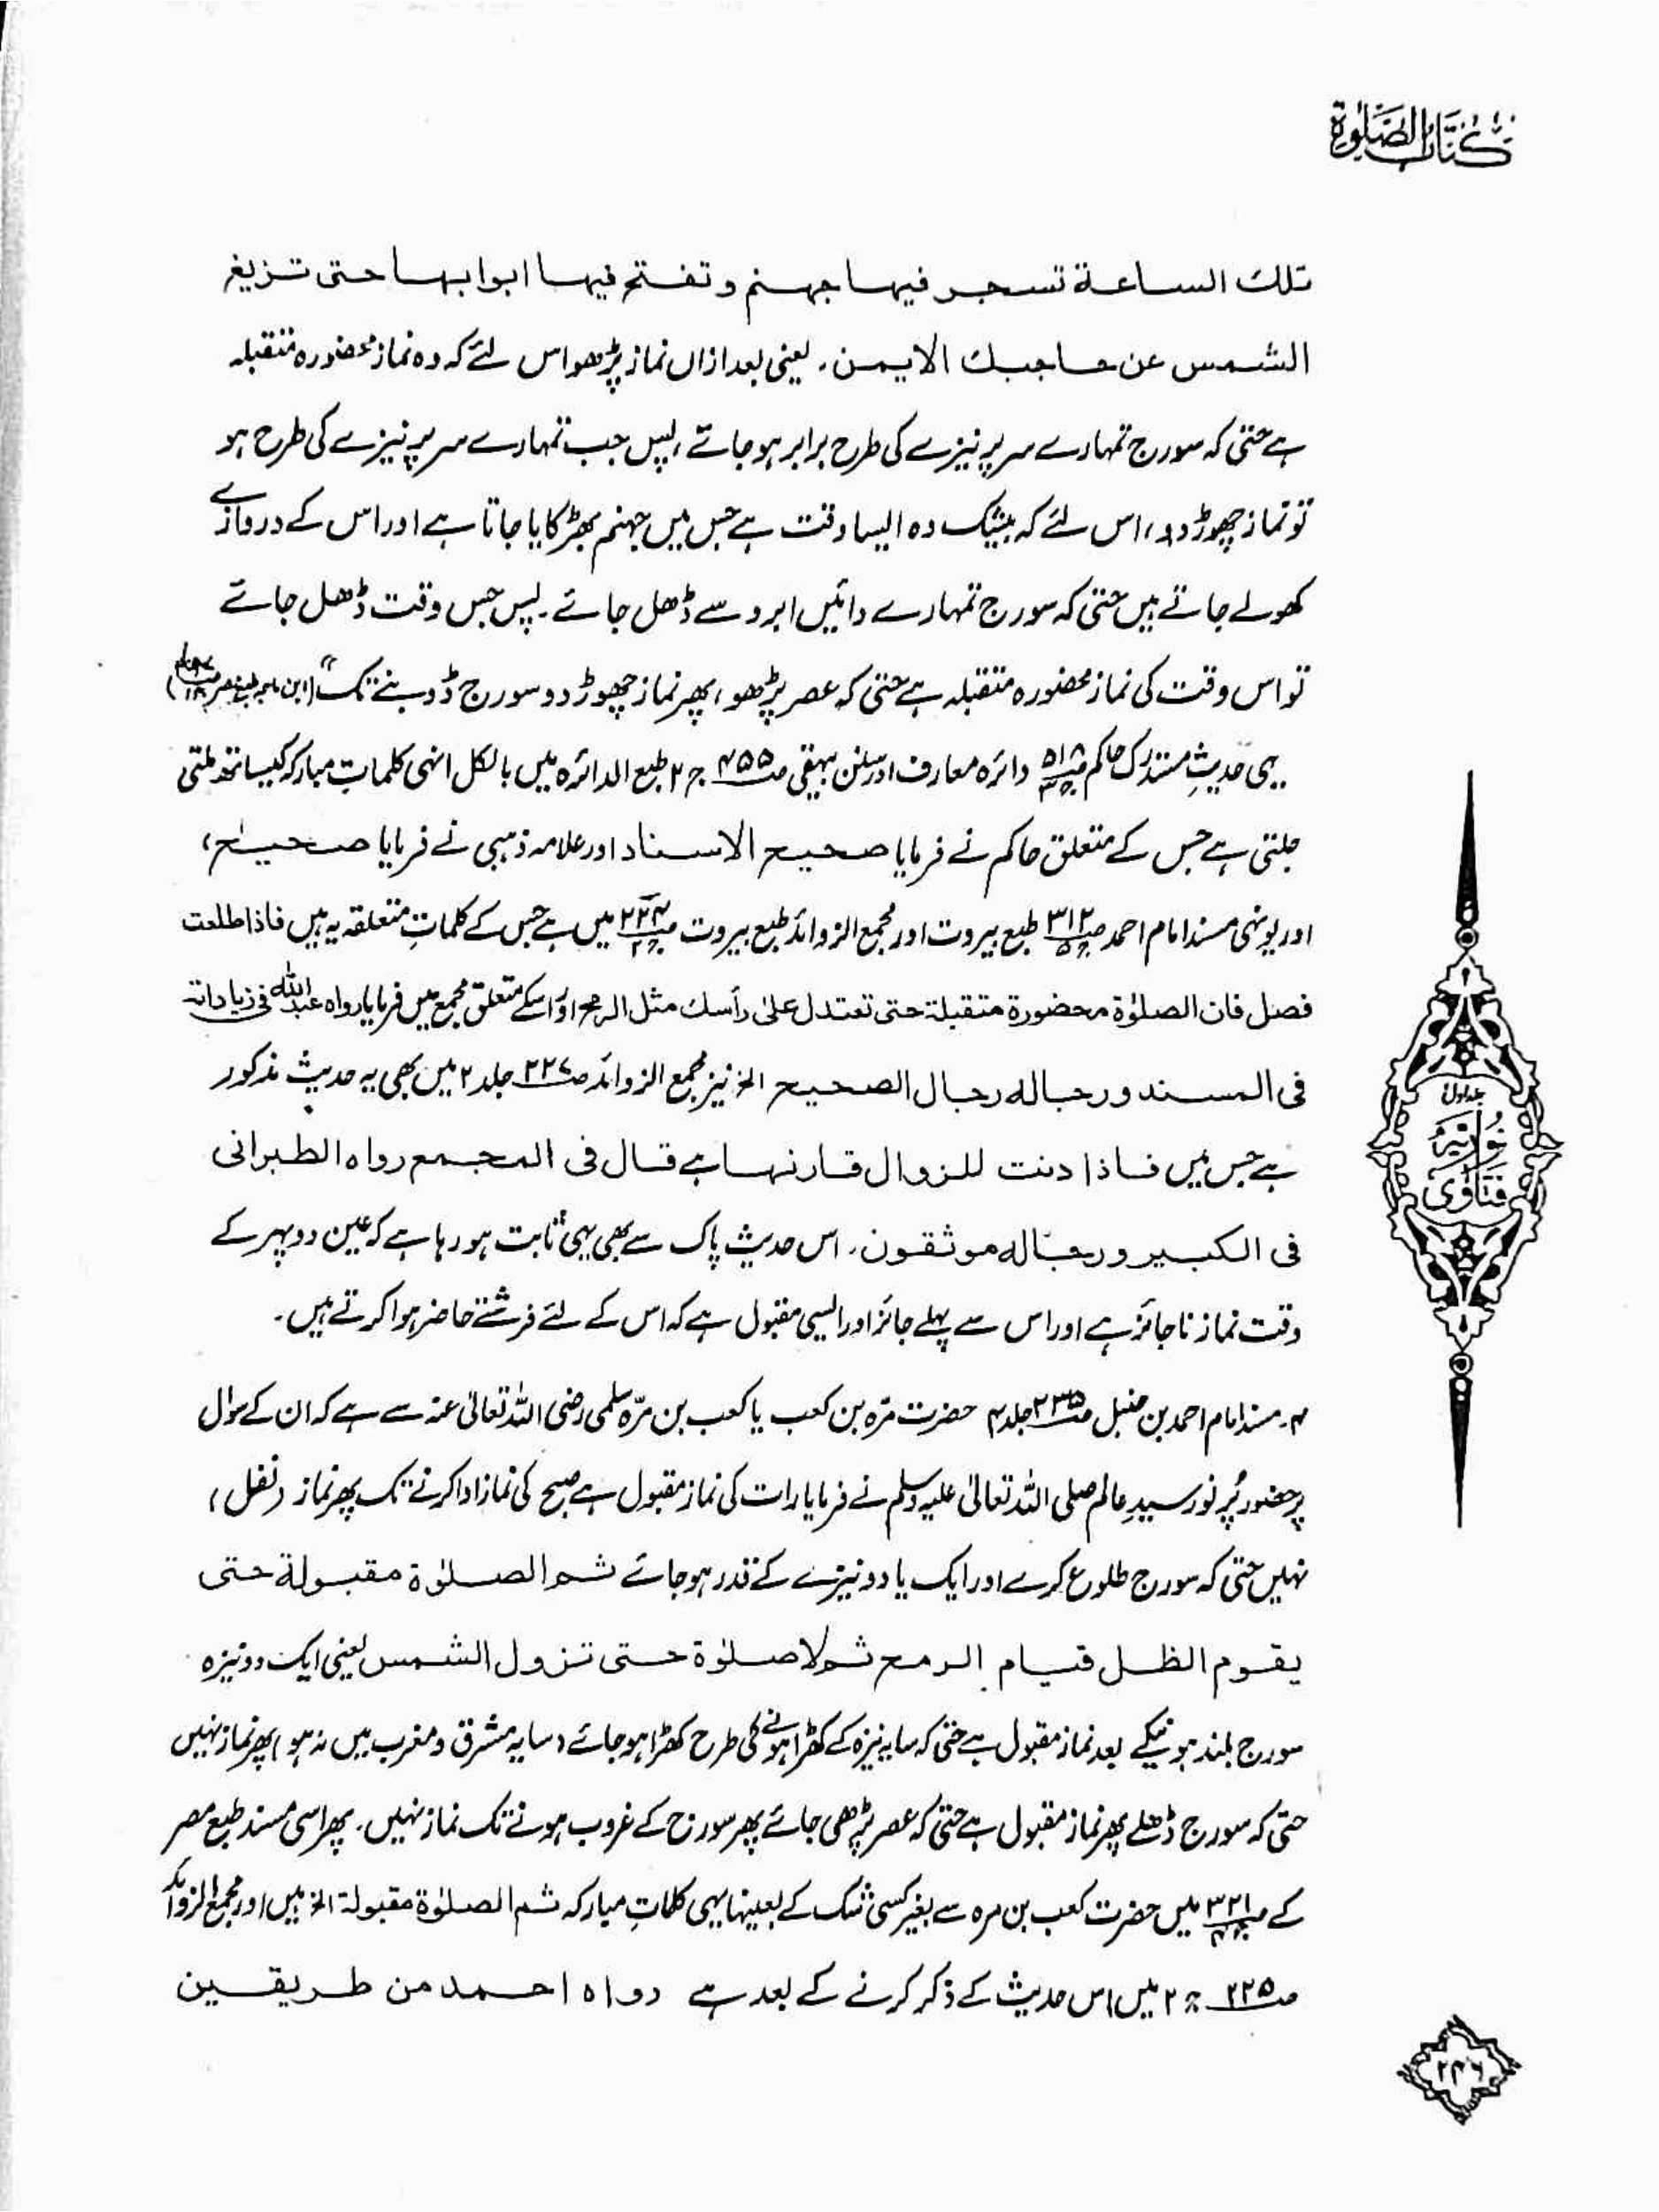 كتاب الصلوة
تلك الساعة تسجر فيها جهنم و تفتح فيها ابوابها حتى تزيغ
الشمس عن حاجبك الايمن۔ یعنی بعد ازاں نماز پڑھو اس لئے کہ وہ نماز محضورہ متقبلہ
ہے حتیٰ کہ سورج تمہارے سر پر نیزے کی طرح برابر ہو جائے، پس جب تمہارے سر پر نیزے کی طرح ہو
تو نماز چھوڑ دو، اس لئے کہ بیشک وہ ایسا وقت ہے جس میں جہنم بھڑکایا جاتا ہے اور اس کے دروازے
کھولے جاتے ہیں حتیٰ کہ سورج تمہارے دائیں ابرو سے ڈھل جائے۔ پس جس وقت ڈھل جائے
تو اس وقت کی نماز محضورہ متقبلہ ہے حتیٰ کہ عصر پڑھو، پھر نماز چھوڑ دو سورج ڈوبنے تک" (ابن ماجہ طبع مصر
یہی حدیثِ مستدرک حاکم ص۵۱۸ ج۳ دائرہ معارف اور سنن بیہقی ص۴۵۵ ج۲ طبع الدائرہ میں بالکل انہی کلماتِ مبارکہ کیساتھ ملتی
جلتی ہے جس کے متعلق حاکم نے فرمایا صحيح الاسناد اور علامہ ذہبی نے فرمایا صحيح،
اور یونہی مسند امام احمد ص۳۱۲ ج۵ طبع بیروت اور مجمع الزوائد طبع بیروت ص۲۲۴ ج۲ میں ہے جس کے کلماتِ متعلقہ یہ ہیں فاذا طلعت
فصل فان الصلوٰة محضورة متقبلة حتى تعتدل علیٰ رأسك مثل الرمح اور اسکے متعلق مجمع میں فرمایا رواه عبد الله فی زياداته
فى المسند و رجاله رجال الصحيح الخ نیز مجمع الزوائد ص۲۲۷ جلد ۲ میں بھی یہ حدیث مذکور
ہے جس میں فاذا دنت للزوال قارنها ہے قال فى المجمع رواه الطبرانى
فى الكبير و رجاله موثقون۔ اس حدیثِ پاک سے بھی یہی ثابت ہو رہا ہے کہ عین دوپہر کے
وقت نماز ناجائز ہے اور اس سے پہلے جائز اور ایسی مقبول ہے کہ اس کے لئے فرشتے حاضر ہوا کرتے ہیں۔
۴۔ مسند امام احمد بن حنبل ص۲۳۵ جلد۴ حضرت مرّہ بن کعب یا کعب بن مرّہ سلمی رضی اللہ تعالیٰ عنہ سے ہے کہ ان کے سوال
پر حضور پُر نور سیدِ عالم صلی اللہ تعالیٰ علیہ وسلم نے فرمایا رات کی نماز مقبول ہے صبح کی نماز ادا کرنے تک پھر نماز (نفل)
نہیں حتیٰ کہ سورج طلوع کرے اور ایک یا دو نیزے کے قدر ہو جائے ثم الصلوٰة مقبولة حتى
يقوم الظل قيام الرمح ثم لا صلوٰة حتى تزول الشمس یعنی ایک دو نیزہ
سورج بلند ہونیکے بعد نماز مقبول ہے حتیٰ کہ سایہ نیزہ کے کھڑا ہونے کی طرح کھڑا ہو جائے (سایہ مشرق و مغرب میں نہ ہو) پھر نماز نہیں
حتیٰ کہ سورج ڈھلے پھر نماز مقبول ہے حتیٰ کہ عصر پڑھی جائے پھر سورج کے غروب ہونے تک نماز نہیں۔ پھر اسی مسند طبع مصر
کے ص۳۲۱ ج۴ میں حضرت کعب بن مرہ سے بغیر کسی شک کے بعینہا یہی کلماتِ مبارکہ ثم الصلوٰة مقبولة الخ ہیں اور مجمع الزوائد
ص۲۲۵ ج۲ میں اس حدیث کے ذکر کرنے کے بعد ہے رواه احمد من طريقين
جلد اول
فتاویٰ نوریہ
۲۴۶